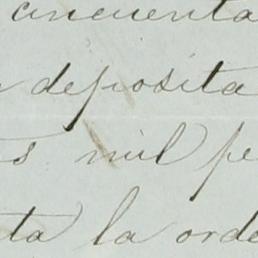 cincuenta
deposita
s mil pe
ta la orde